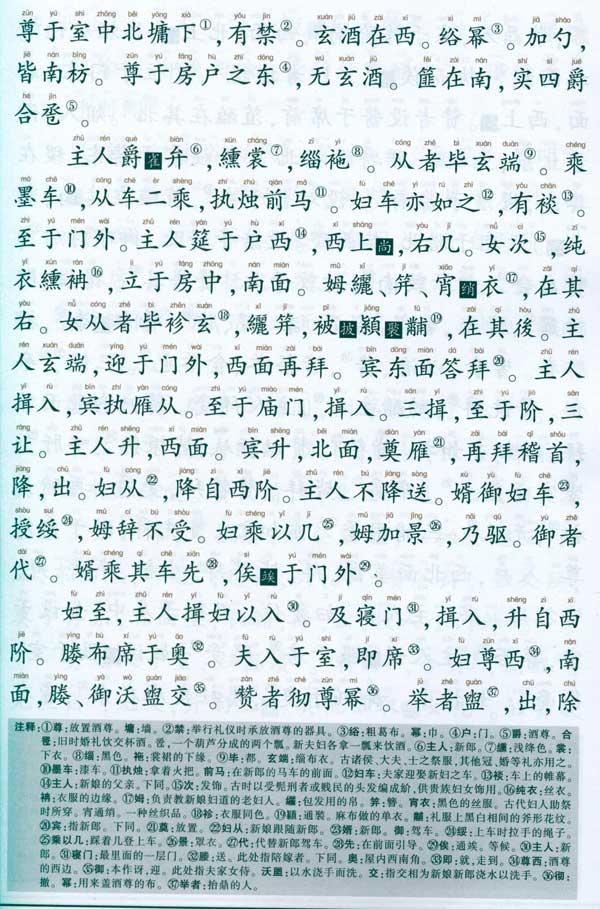 尊于室中北墉下①，有禁②。玄酒在西。绤幂③。加勺，
皆南枋。尊于房户之东④，无玄酒。篚在南，实四爵
合卺⑤。
主人爵雀弁⑥，纁裳⑦，缁袘⑧。从者毕玄端⑨。乘
墨车⑩，从车二乘，执烛前马⑪。妇车亦如之⑫，有裧⑬。
至于门外。主人筵于户西⑭，西上尚，右几。女次⑮，纯
衣纁袡⑯，立于房中，南面。姆纚、笄、宵绡衣⑰，在其
右。女从者毕袗玄⑱，纚笄，被披顈褧黼⑲，在其後。主
人玄端，迎于门外，西面再拜。宾东面答拜⑳。主人
揖入，宾执雁从。至于庙门，揖入。三揖，至于阶，三
让。主人升，西面。宾升，北面，奠雁㉑，再拜稽首，
降，出。妇从㉒，降自西阶。主人不降送。婿御妇车㉓，
授绥㉔，姆辞不受。妇乘以几㉕，姆加景㉖，乃驱。御者
代㉗。婿乘其车先㉘，俟竢于门外㉙。
妇至，主人揖妇以入㉚。及寝门㉛，揖入，升自西
阶。媵布席于奥㉜。夫入于室，即席㉝。妇尊西㉞，南
面，媵、御沃盥交㉟。赞者彻尊幂㊱。举者盥㊲，出，除
注释：①尊：放置酒尊。墉：墙。②禁：举行礼仪时承放酒尊的器具。③绤：粗葛布。幂：巾。④户：门。⑤爵：酒尊。合
卺：旧时婚礼饮交杯酒。卺，一个葫芦分成的两个瓢。新夫妇各拿一瓢来饮酒。⑥主人：新郎。⑦纁：浅绛色。裳：
下衣。⑧缁：黑色。袘：裳裙的下缘。⑨毕：都。玄端：缁布衣。古诸侯、大夫、士之祭服，其他冠、婚等礼亦用之。
⑩墨车：漆车。⑪执烛：拿着火把。前马：在新郎的马车的前面。⑫妇车：夫家迎娶新妇之车。⑬裧：车上的帷幕。
⑭主人：新娘的父亲。下同。⑮次：发饰。古时以受髡刑者或贱民的头发编成䯼，供贵族妇女饰用。⑯纯衣：丝衣。
袡：衣服的边缘。⑰姆：负责教新娘妇道的老妇人。纚：包发用的帛。笄：簪。宵衣：黑色的丝服。古代妇人助祭
时所穿。宵通绡。一种丝织品。⑱袗：衣服同色。⑲顈：通褧。麻布做的单衣。黼：礼服上黑白相间的斧形花纹。
⑳宾：指新郎。下同。㉑奠：放置。㉒妇从：新娘跟随新郎。㉓婿：新郎。御：驾车。㉔绥：上车时拉手的绳子。
㉕乘以几：踩着几登上车。㉖景：罩衣。㉗代：代替新郎驾车。㉘先：在前面引导。㉙俟：通竢。等候。㉚主人：新
郎。㉛寝门：最里面的一层门。㉜媵：送。此处指陪嫁者。下同。奥：屋内西南角。㉝即：就，走到。㉞尊西：酒尊
的西边。㉟御：本作讶。迎。此处指夫家女侍。沃盥：以水浇手而洗。交：指交相为新娘新郎浇水以洗手。㊱彻：
撤。幂：用来盖酒尊的布。㊲举者：抬鼎的人。